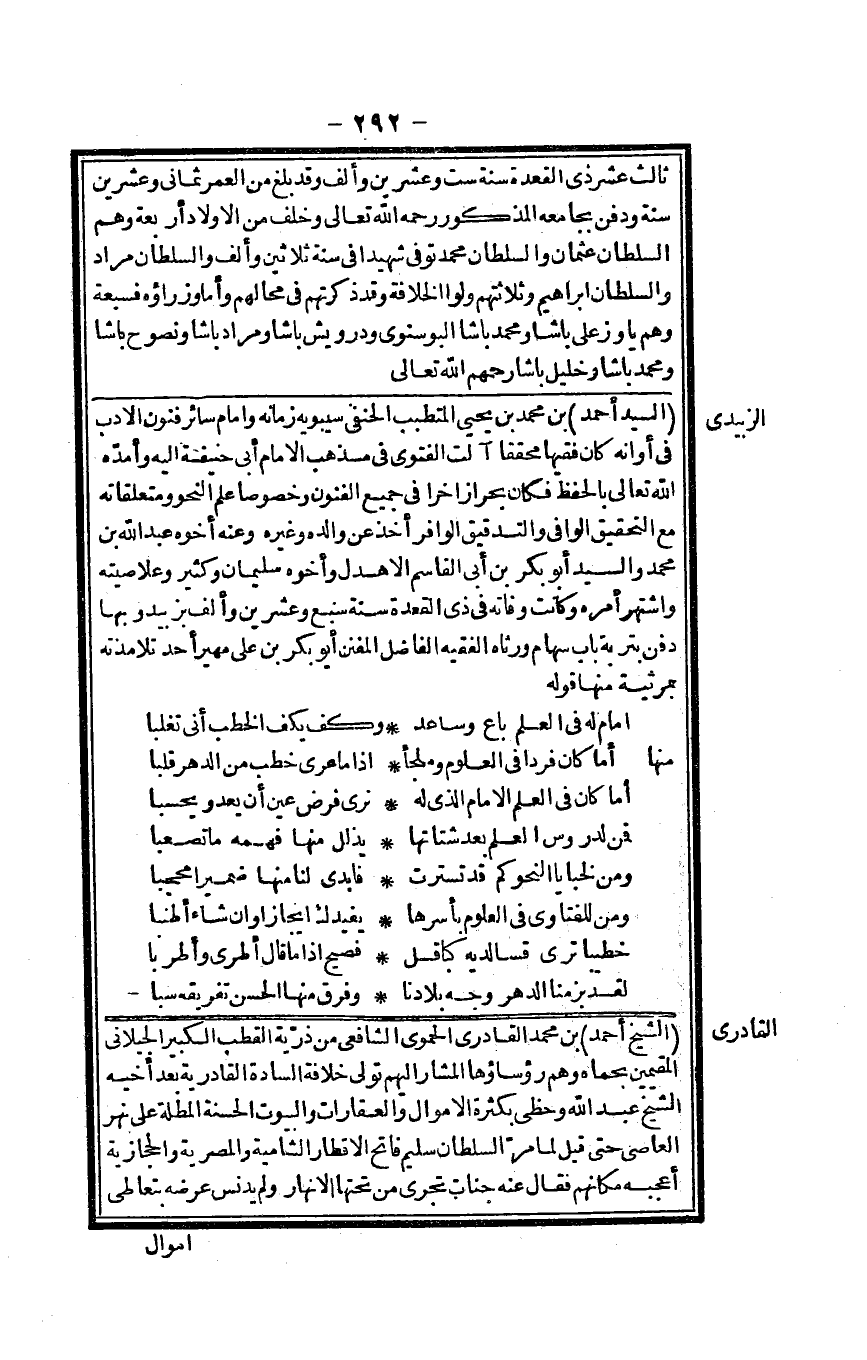 - ٢٩٢ -
ثالث عشر ذى القعدة سنة ست وعشرين وألف وقد بلغ من العمر ثمانى وعشرين
سنة ودفن بجامعه المذكور رحمه الله تعالى وخلف من الاولاد أربعة وهم
السلطان عثمان والسلطان محمد توفى شهيدا فى سنة ثلاثين وألف والسلطان مراد
والسلطان ابراهيم وثلاثتهم ولوا الخلافة وقد ذكرتهم فى محالهم وأما وزراؤه فسبعة
وهم ياوز على باشا ومحمد باشا البوسنوى ودرويش باشا ومراد باشا ونصوح باشا
ومحمد باشا وخليل باشا رحمهم الله تعالى
الزبيدى
(السيد أحمد) بن محمد بن يحيى المتطبب الحنفى سيبويه زمانه وامام سائر فنون الادب
فى أوانه كان فقيها محققا آلت الفتوى فى مذهب الامام أبى حنيفة اليه وأمده
الله تعالى بالحفظ فكان بحرا زاخرا فى جميع الفنون وخصوصا علم النحو ومتعلقاته
مع التحقيق الوافى والتدقيق الوافر أخذ عن والده وغيره وعنه أخوه عبد الله بن
محمد والسيد أبو بكر بن أبى القاسم الاهدل وأخوه سليمان وكثير وعلا صيته
واشتهر أمره وكانت وفاته فى ذى القعدة سنة سبع وعشرين وألف بزبيد وبها
دفن بتربة باب سهام ورثاه الفقيه الفاضل المفنن أبو بكر بن على مهير أحد تلامذته
بمرثية منها قوله
امام له فى العلم باع وساعد * وكف يكف الخطب أنى تغلبا
منها أما كان فردا فى العلوم وملجأ * اذا ما عرى خطب من الدهر قلبا
أما كان فى العلم الامام الذى له * نرى فرض عين أن يعد ويحسبا
فمن لدروس العلم بعد شتاتها * يذلل منها فهمه ما تصعبا
ومن لخبايا النحو كم قد تسترت * فابدى لنا منها ضميرا محجبا
ومن للفتاوى فى العلوم بأسرها * يفيدك ايجازا وان شاء أطنبا
خطيبا ترى قسا لديه كباقل * فصيح اذا ما قال أطرى وأطربا
لقد بزمنا الدهر وجه بلادنا * وفرق منها الحسن تفريقه سبا -
القادرى
(الشيخ أحمد) بن محمد القادرى الحموى الشافعى من ذرية القطب الكبير الجيلانى
المقيمين بحماه وهم رؤساؤها المشار اليهم تولى خلافة السادة القادرية بعد أخيه
الشيخ عبد الله وحظى بكثرة الاموال والعقارات والبيوت الحسنة المطلة على نهر
العاصى حتى قيل لما مر السلطان سليم فاتح الاقطار الشامية والمصرية والحجازية
أعجبه مكانهم فقال عنه جنات تجرى من تحتها الانهار ولم يدنس عرضه بتعاطى
اموال